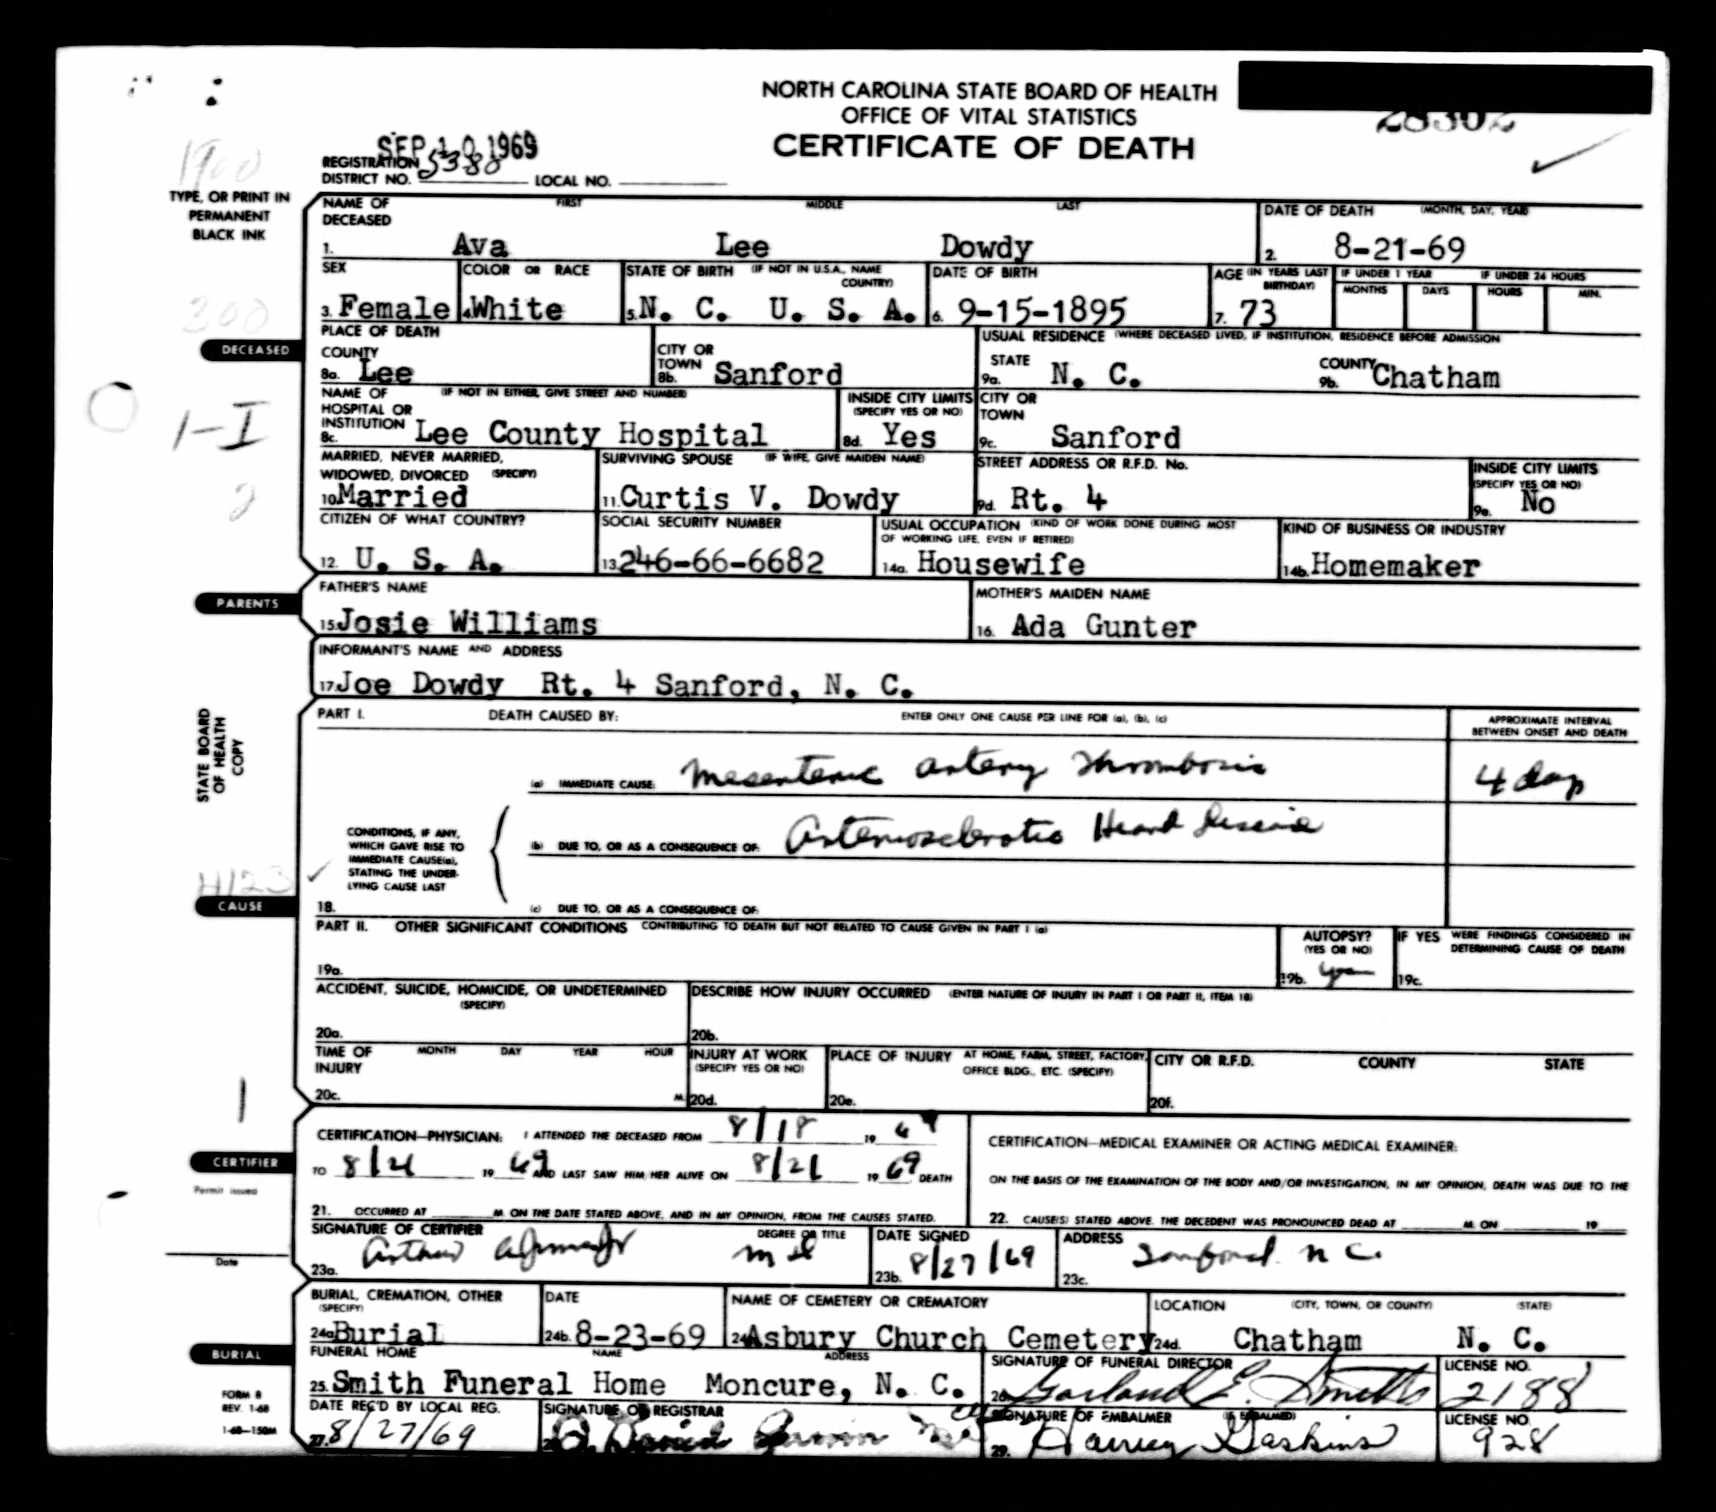 NORTH CAROLINA STATE BOARD OF HEALTH
OFFICE OF VITAL STATISTICS
CERTIFICATE OF DEATH
28302
SEP 10 1969
1900
REGISTRATION DISTRICT NO. 5380 LOCAL NO.
TYPE, OR PRINT IN
PERMANENT
BLACK INK
NAME OF DECEASED FIRST MIDDLE LAST DATE OF DEATH (MONTH, DAY, YEAR)
1. Ava Lee Dowdy 2. 8-21-69
SEX COLOR OR RACE STATE OF BIRTH (IF NOT IN U.S.A., NAME COUNTRY) DATE OF BIRTH AGE (IN YEARS LAST BIRTHDAY) IF UNDER 1 YEAR IF UNDER 24 HOURS
MONTHS DAYS HOURS MIN.
3. Female 4. White 5. N. C. U. S. A. 6. 9-15-1895 7. 73
300
DECEASED
PLACE OF DEATH USUAL RESIDENCE (WHERE DECEASED LIVED, IF INSTITUTION, RESIDENCE BEFORE ADMISSION
COUNTY CITY OR TOWN STATE COUNTY
8a. Lee 8b. Sanford 9a. N. C. 9b. Chatham
NAME OF HOSPITAL OR INSTITUTION (IF NOT IN EITHER, GIVE STREET AND NUMBER) INSIDE CITY LIMITS (SPECIFY YES OR NO) CITY OR TOWN
8c. Lee County Hospital 8d. Yes 9c. Sanford
1-I
MARRIED, NEVER MARRIED, WIDOWED, DIVORCED (SPECIFY) SURVIVING SPOUSE (IF WIFE, GIVE MAIDEN NAME) STREET ADDRESS OR R.F.D. No. INSIDE CITY LIMITS (SPECIFY YES OR NO)
10. Married 11. Curtis V. Dowdy 9d. Rt. 4 9e. No
2
CITIZEN OF WHAT COUNTRY? SOCIAL SECURITY NUMBER USUAL OCCUPATION (KIND OF WORK DONE DURING MOST OF WORKING LIFE, EVEN IF RETIRED) KIND OF BUSINESS OR INDUSTRY
12. U. S. A. 13. 246-66-6682 14a. Housewife 14b. Homemaker
PARENTS
FATHER'S NAME MOTHER'S MAIDEN NAME
15. Josie Williams 16. Ada Gunter
INFORMANT'S NAME AND ADDRESS
17. Joe Dowdy Rt. 4 Sanford, N. C.
STATE BOARD
OF HEALTH
COPY
PART I. DEATH CAUSED BY: ENTER ONLY ONE CAUSE PER LINE FOR (a), (b), (c) APPROXIMATE INTERVAL BETWEEN ONSET AND DEATH
(a) IMMEDIATE CAUSE: Mesenteric Artery Thrombosis 4 days
CONDITIONS, IF ANY,
WHICH GAVE RISE TO
IMMEDIATE CAUSE(a),
STATING THE UNDER-
LYING CAUSE LAST
(b) DUE TO, OR AS A CONSEQUENCE OF: Arteriosclerotic Heart Disease
4123
CAUSE
18. (c) DUE TO, OR AS A CONSEQUENCE OF:
PART II. OTHER SIGNIFICANT CONDITIONS CONTRIBUTING TO DEATH BUT NOT RELATED TO CAUSE GIVEN IN PART I (a) AUTOPSY? (YES OR NO) IF YES WERE FINDINGS CONSIDERED IN DETERMINING CAUSE OF DEATH
19a. 19b. yes 19c.
ACCIDENT, SUICIDE, HOMICIDE, OR UNDETERMINED (SPECIFY) DESCRIBE HOW INJURY OCCURRED (ENTER NATURE OF INJURY IN PART I OR PART II, ITEM 18)
20a. 20b.
TIME OF INJURY MONTH DAY YEAR HOUR INJURY AT WORK (SPECIFY YES OR NO) PLACE OF INJURY AT HOME, FARM, STREET, FACTORY, OFFICE BLDG., ETC. (SPECIFY) CITY OR R.F.D. COUNTY STATE
20c. M. 20d. 20e. 20f.
1
CERTIFIER
Permit issued
Date
CERTIFICATION—PHYSICIAN: I ATTENDED THE DECEASED FROM 8/18 19 69
TO 8/21 19 69 AND LAST SAW HIM/HER ALIVE ON 8/21 19 69 DEATH
21. OCCURRED AT M. ON THE DATE STATED ABOVE, AND IN MY OPINION, FROM THE CAUSES STATED.
CERTIFICATION—MEDICAL EXAMINER OR ACTING MEDICAL EXAMINER:
ON THE BASIS OF THE EXAMINATION OF THE BODY AND/OR INVESTIGATION, IN MY OPINION, DEATH WAS DUE TO THE
22. CAUSE(S) STATED ABOVE. THE DECEDENT WAS PRONOUNCED DEAD AT M. ON 19
SIGNATURE OF CERTIFIER DEGREE OR TITLE DATE SIGNED ADDRESS
23a. Arthur MD 23b. 8/27/69 23c. Sanford N C.
BURIAL, CREMATION, OTHER (SPECIFY) DATE NAME OF CEMETERY OR CREMATORY LOCATION (CITY, TOWN, OR COUNTY) (STATE)
24a. Burial 24b. 8-23-69 24c. Asbury Church Cemetery 24d. Chatham N. C.
BURIAL
FUNERAL HOME NAME ADDRESS SIGNATURE OF FUNERAL DIRECTOR LICENSE NO.
25. Smith Funeral Home Moncure, N. C. 26. Garland E. Smith 2188
FORM 8
REV. 1-68
1-68—150M
DATE REC'D BY LOCAL REG. SIGNATURE OF REGISTRAR SIGNATURE OF EMBALMER (IF EMBALMED) LICENSE NO.
27. 8/27/69 28. David 29. Harvey Gaskins 928